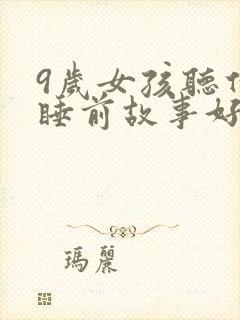 9歲女孩聽
睡前故事好
瑪麗